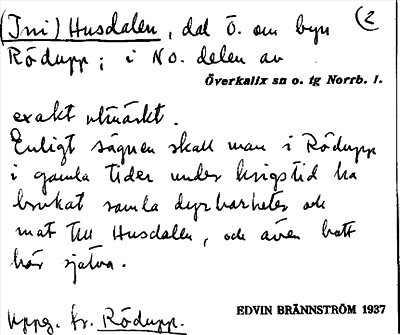 (Ini) Husdalen, dal Ö. om byn (2
Rödupp; i NO. delen av
Överkalix sn o. tg Norrb. l.
exakt utmärkt.
Enligt sägnen skall man i Rödupp
i gamla tider under krigstid ha
brukat samla dyrbarheter och
mat till Husdalen, och även bott
här själva.
Uppg. fr. Rödupp.
EDVIN BRÄNNSTRÖM 1937